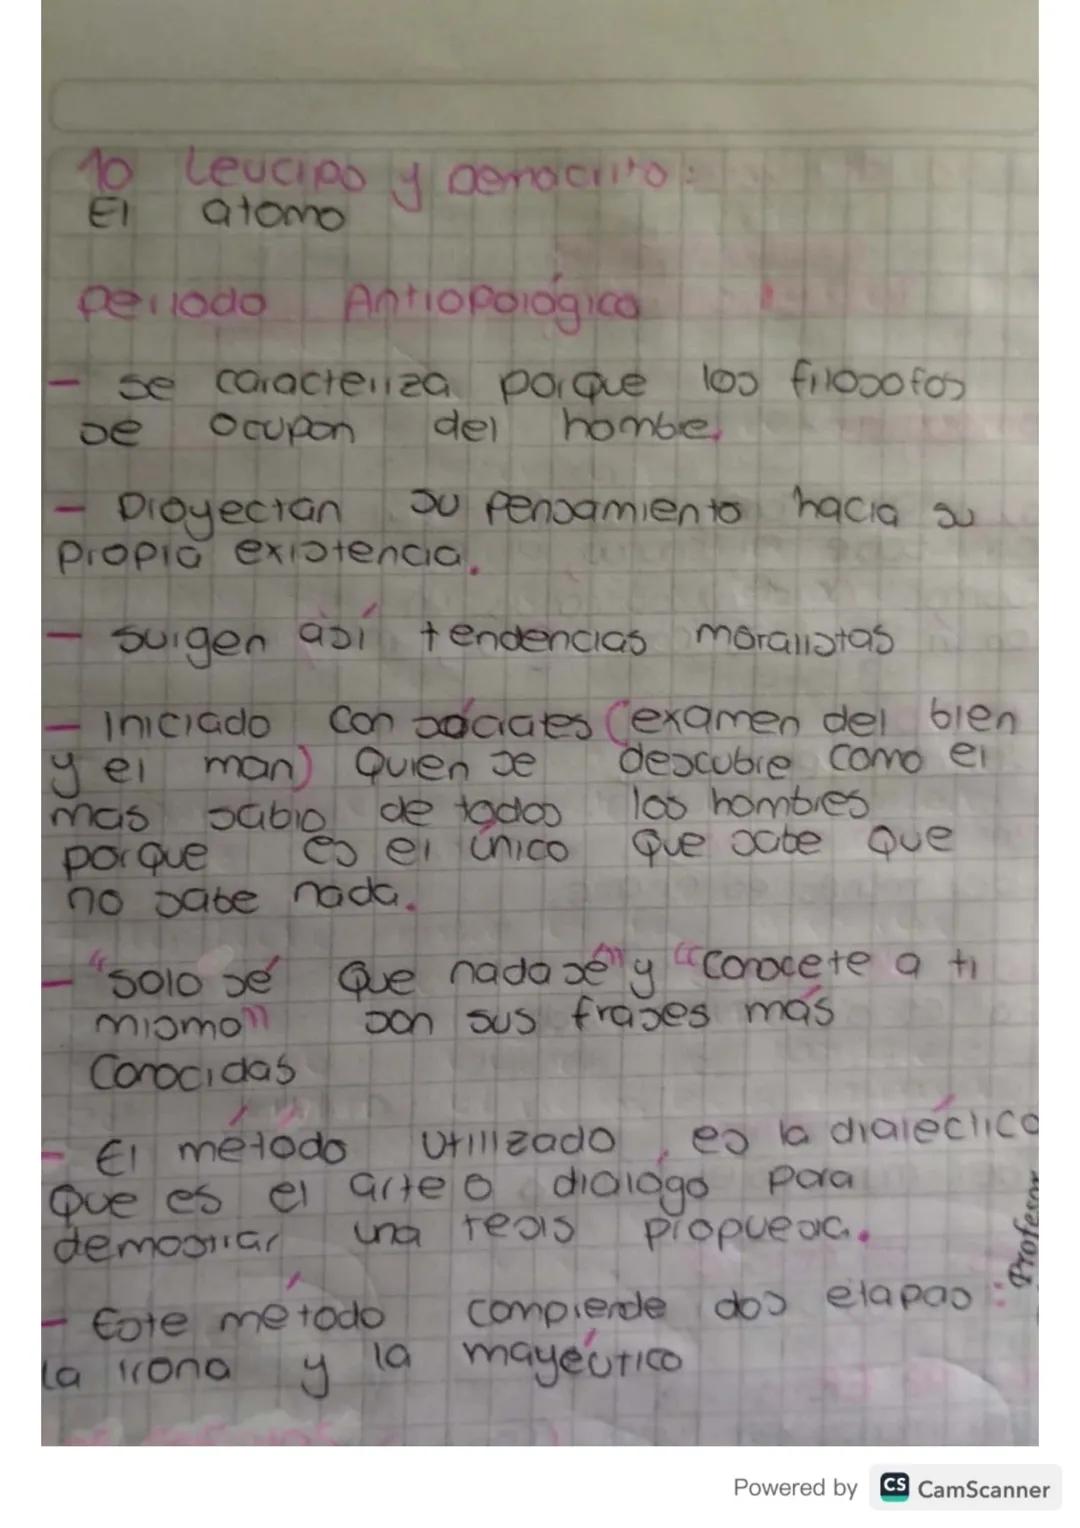 10 Leucipo y Democrito:
El atomo
Periodo Antropológico
- se caracteriza porque los filosofos
se ocupan del hombre.
- Proyectan su pensamiento hacia su
propia existencia.
- surgen así tendencias moralistas
- Iniciado con sócrates (examen del bien
y el man) Quien se descubre como el
mas sabio de todos los hombres
porque es el único que sabe que
no sabe nada.
- "solo sé que nada sé" y "conocete a ti
mismo" son sus frases más
Conocidas
- El método utilizado, es la dialéctica
que es el arte o dialógo para
demostrar una tesis propuesa.
Profesor
- Este método comprende dos etapas:
la irona y la mayéutico
Powered by CS CamScanner